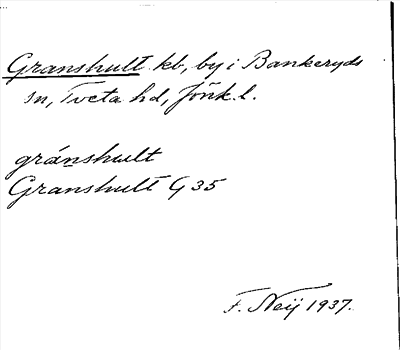 Granshult kb, by i Bankeryds
sn, Tveta hd, Jönk. l.
gránshult
Granshult G 35
F. Neij 1937.